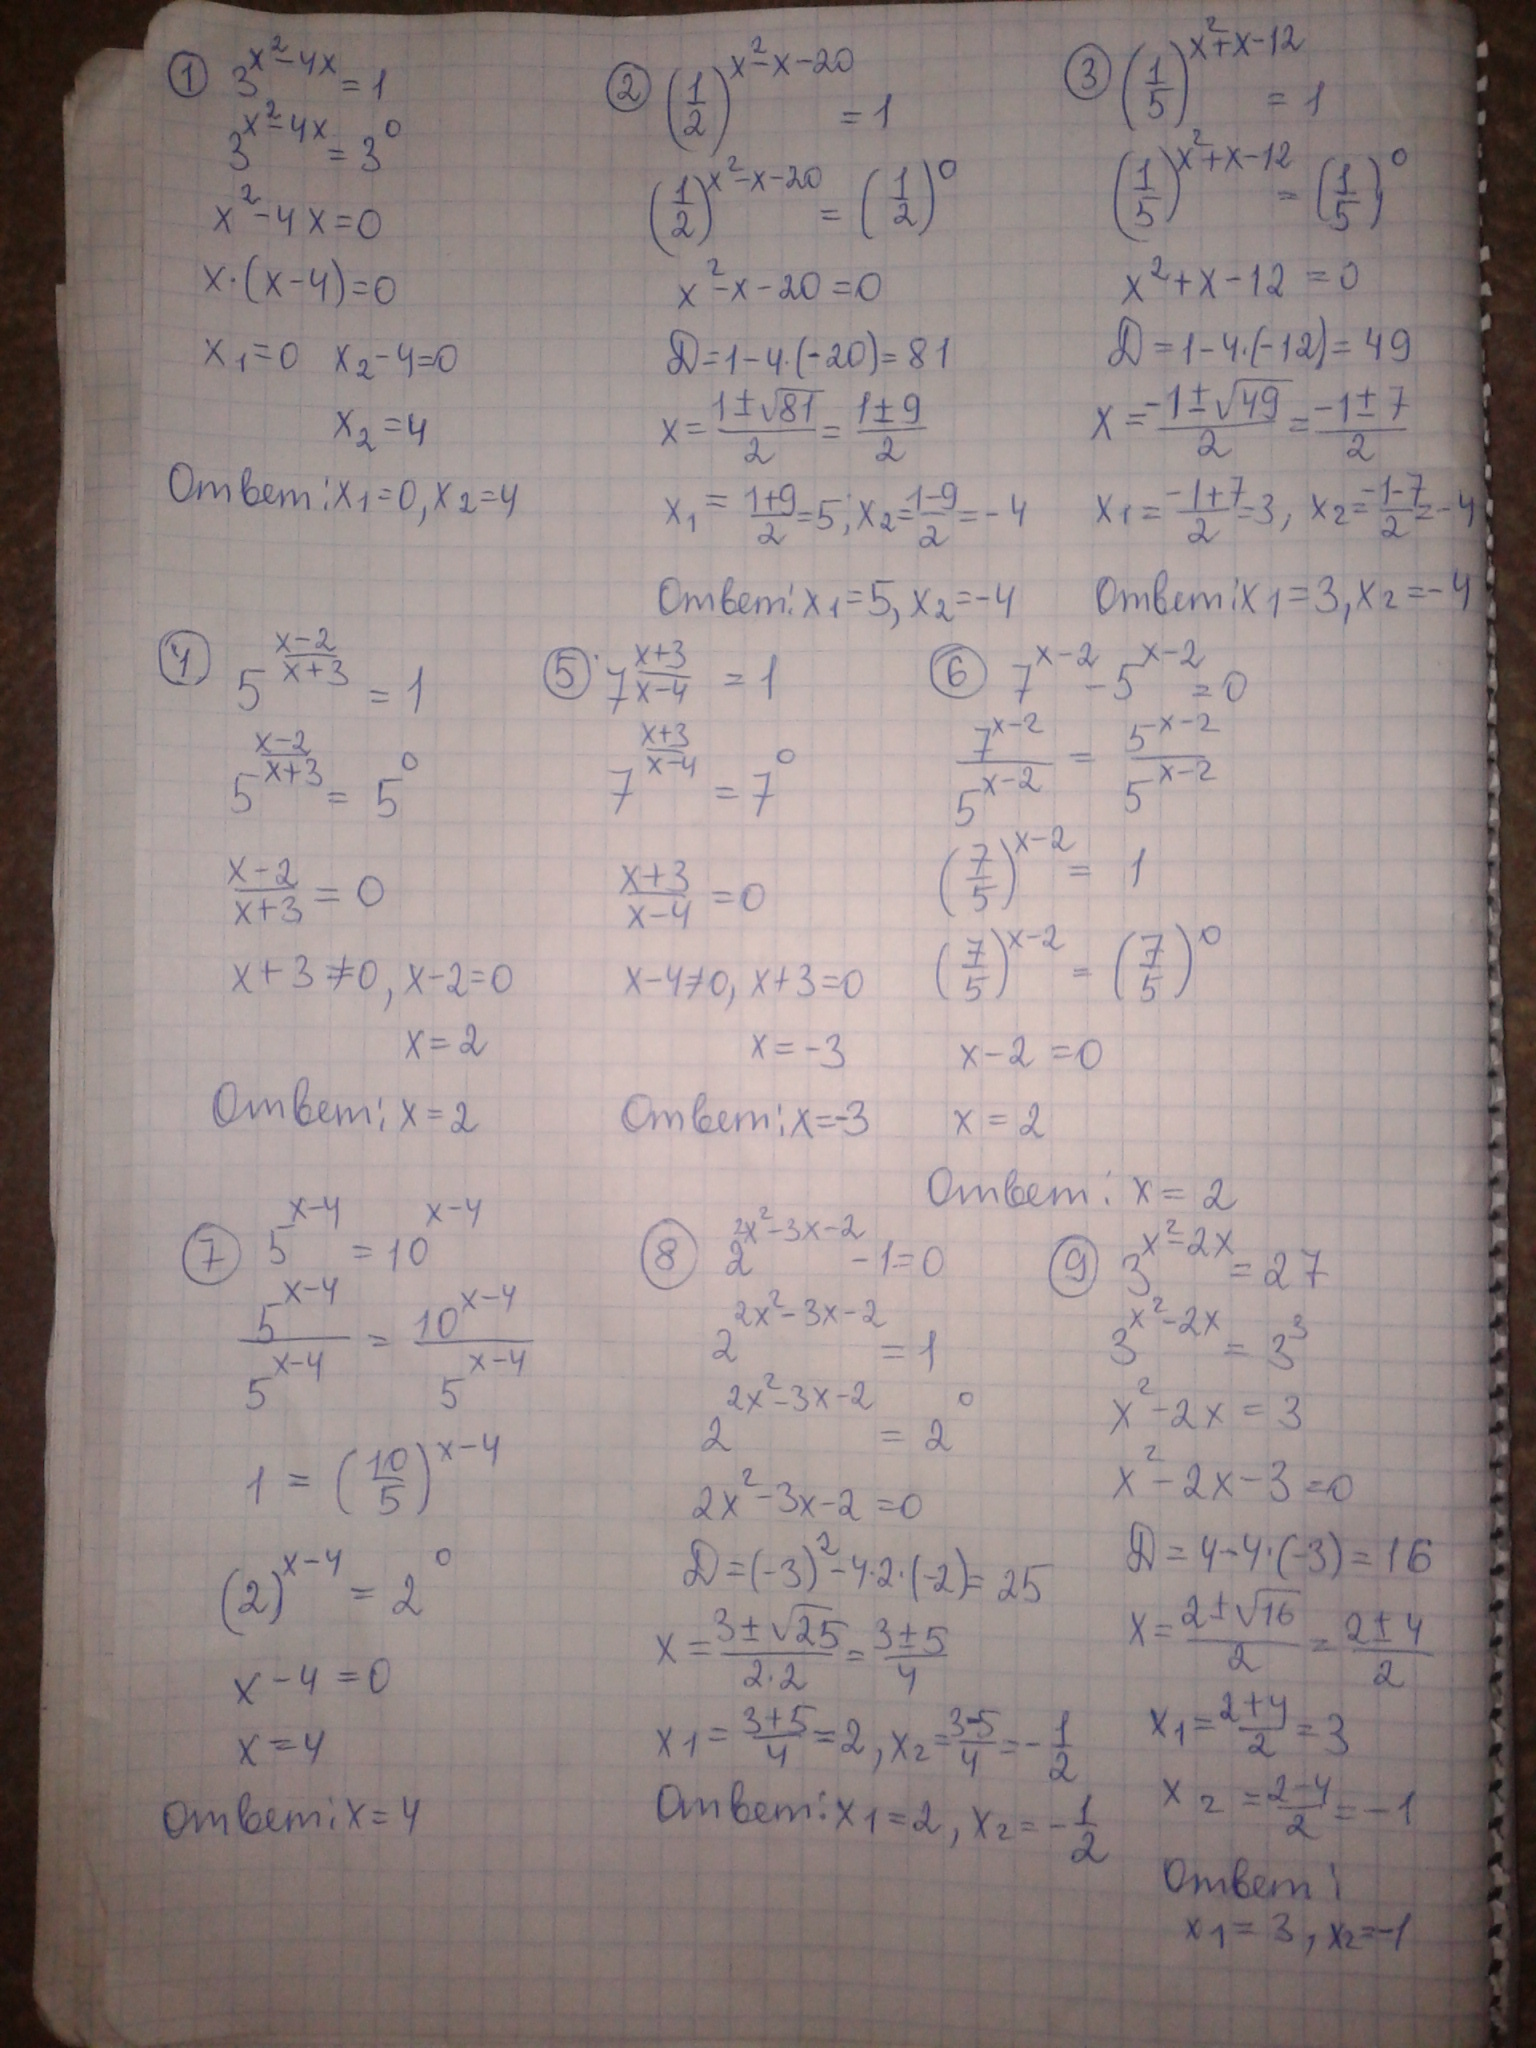 ① 3^(x²-4x) = 1
3^(x²-4x) = 3⁰
x²-4x=0
x·(x-4)=0
x₁=0 x₂-4=0
x₂=4
Ответ: x₁=0, x₂=4
② (1/2)^(x²-x-20) = 1
(1/2)^(x²-x-20) = (1/2)⁰
x²-x-20=0
D=1-4·(-20)=81
x = (1±√81)/2 = (1±9)/2
x₁ = (1+9)/2 = 5; x₂ = (1-9)/2 = -4
Ответ: x₁=5, x₂=-4
③ (1/5)^(x²+x-12) = 1
(1/5)^(x²+x-12) = (1/5)⁰
x²+x-12=0
D=1-4·(-12)=49
x = (-1±√49)/2 = (-1±7)/2
x₁ = (-1+7)/2 = 3, x₂ = (-1-7)/2 = -4
Ответ: x₁=3, x₂=-4
④ 5^((x-2)/(x+3)) = 1
5^((x-2)/(x+3)) = 5⁰
(x-2)/(x+3) = 0
x+3≠0, x-2=0
x=2
Ответ: x=2
⑤ 7^((x+3)/(x-4)) = 1
7^((x+3)/(x-4)) = 7⁰
(x+3)/(x-4) = 0
x-4≠0, x+3=0
x=-3
Ответ: x=-3
⑥ 7^(x-2) - 5^(x-2) = 0
7^(x-2)/5^(x-2) = 5^(x-2)/5^(x-2)
(7/5)^(x-2) = 1
(7/5)^(x-2) = (7/5)⁰
x-2=0
x=2
Ответ: x=2
⑦ 5^(x-4) = 10^(x-4)
5^(x-4)/5^(x-4) = 10^(x-4)/5^(x-4)
1 = (10/5)^(x-4)
(2)^(x-4) = 2⁰
x-4=0
x=4
Ответ: x=4
⑧ 2^(2x²-3x-2) - 1=0
2^(2x²-3x-2) = 1
2^(2x²-3x-2) = 2⁰
2x²-3x-2=0
D=(-3)²-4·2·(-2)=25
x = (3±√25)/(2·2) = (3±5)/4
x₁ = (3+5)/4 = 2, x₂ = (3-5)/4 = -1/2
Ответ: x₁=2, x₂=-1/2
⑨ 3^(x²-2x) = 27
3^(x²-2x) = 3³
x²-2x=3
x²-2x-3=0
D=4-4·(-3)=16
x = (2±√16)/2 = (2±4)/2
x₁ = (2+4)/2 = 3
x₂ = (2-4)/2 = -1
Ответ:
x₁=3, x₂=-1